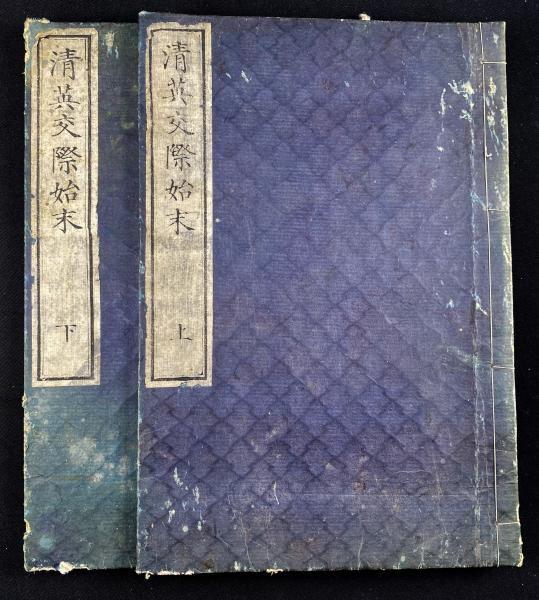 清英交際始末
上
清英交際始末
下